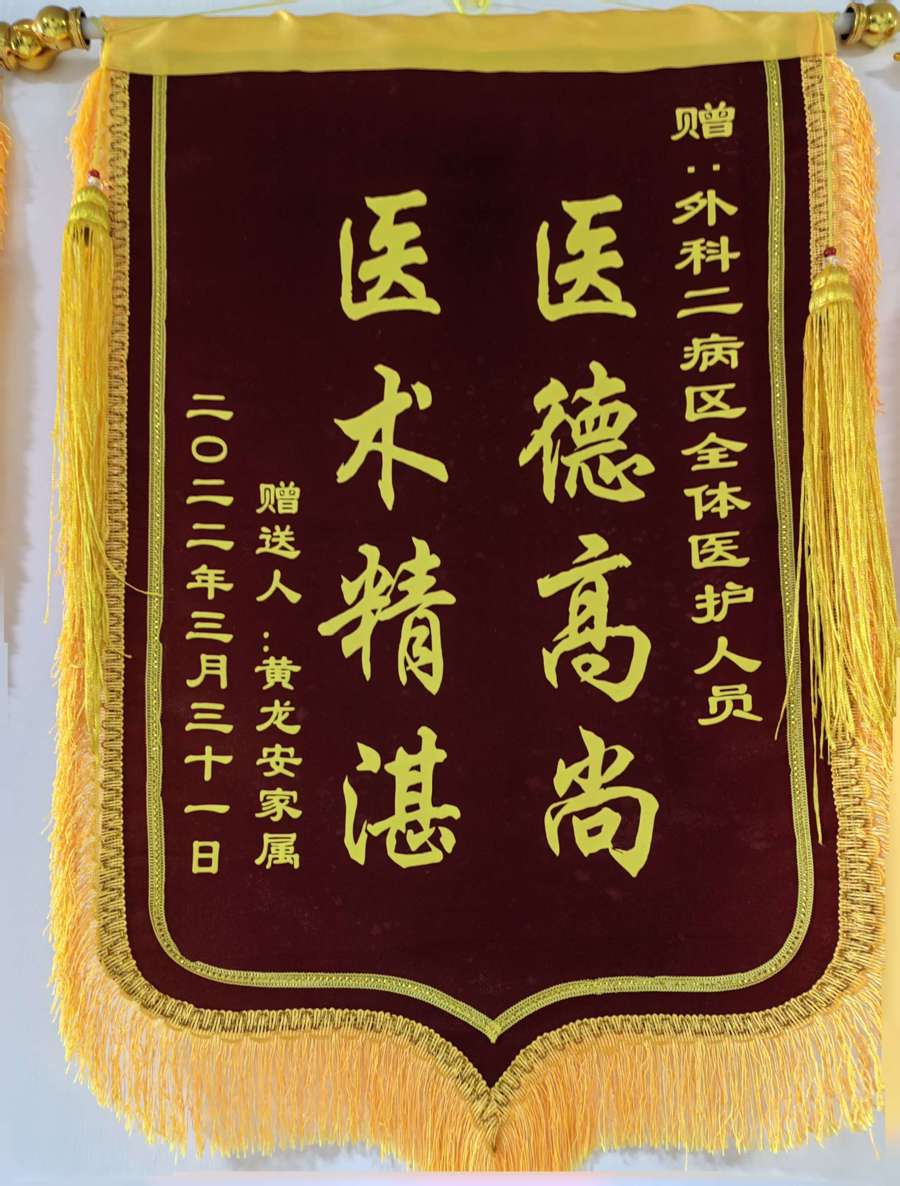 赠:外科二病区全体医护人员
医德高尚
医术精湛
赠送人:黄龙安家属
二〇二二年三月三十一日